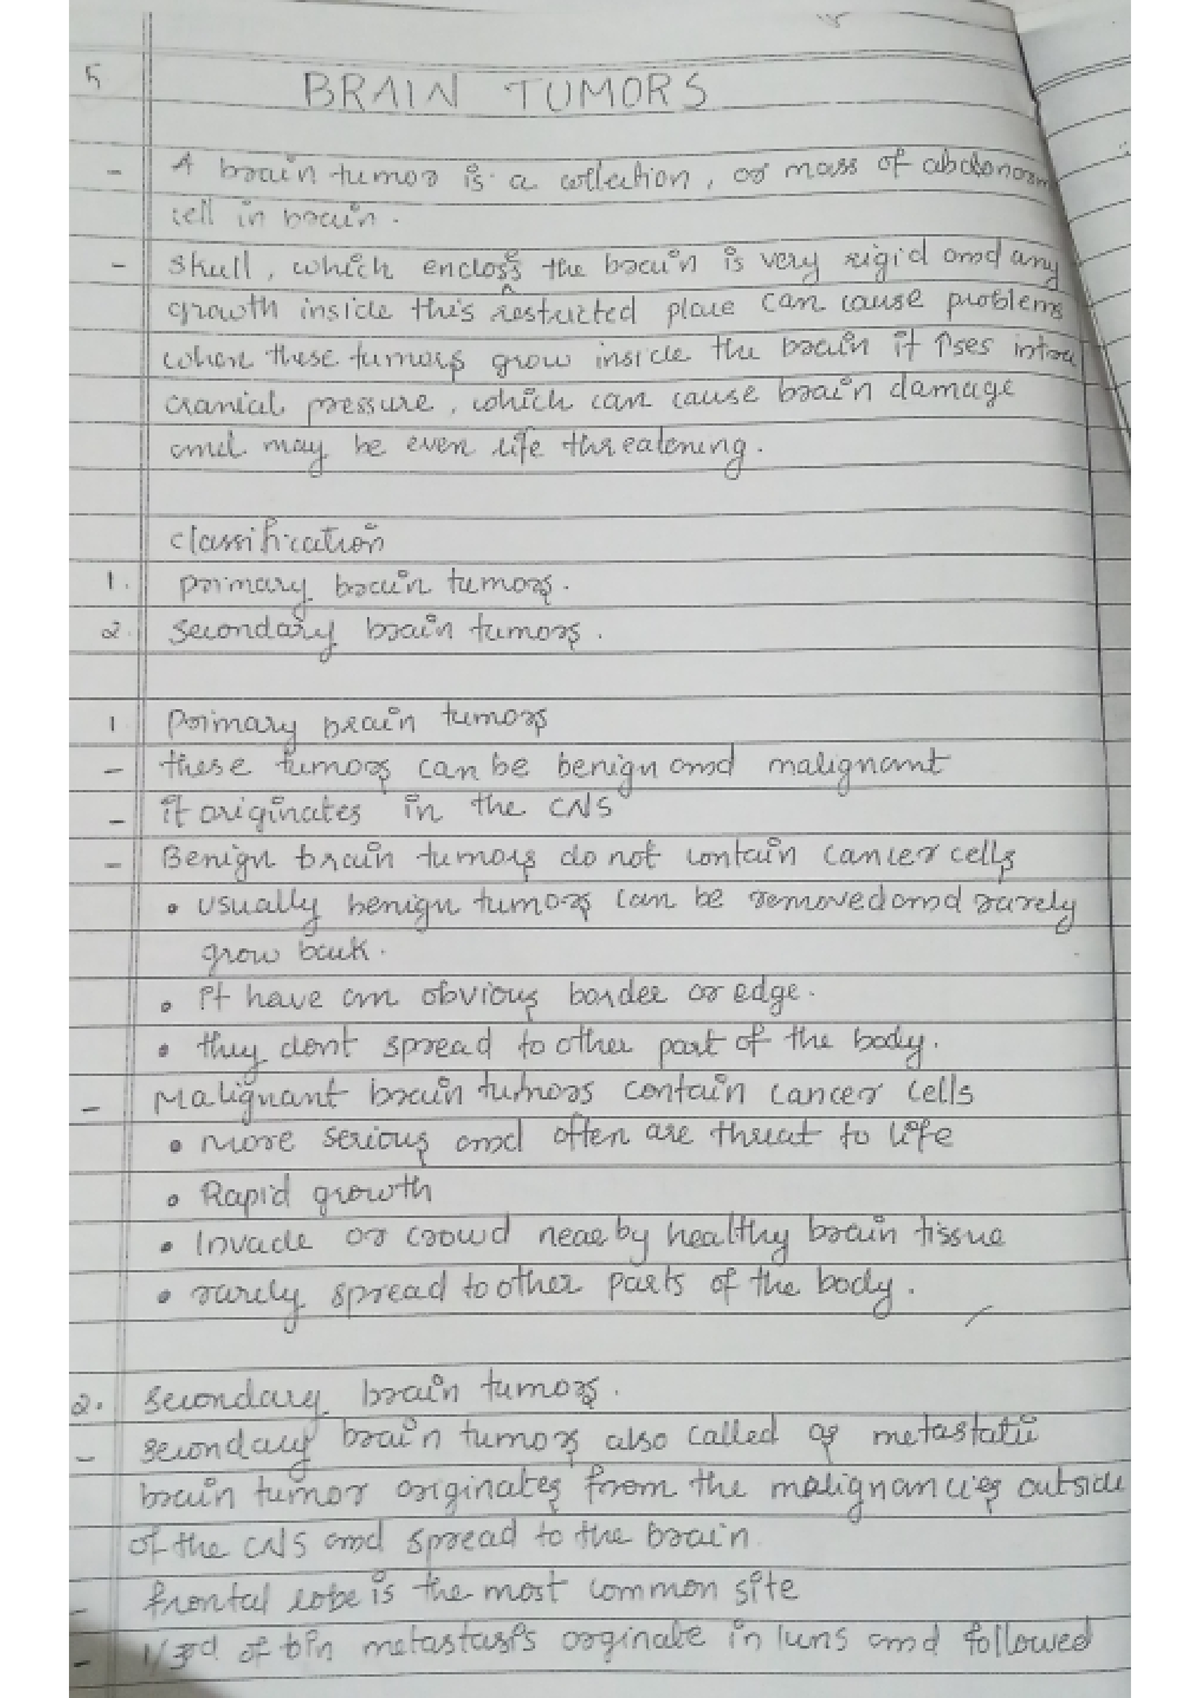 5
BRAIN TUMORS
- A brain tumor is a collection, or mass of abdonorm
cell in brain.
- skull, which encloses the brain is very rigid and any
growth inside this restricted place can cause problems
when these tumors grow inside the brain it ↑ses intra
cranial pressure, which can cause brain damage
and may be even life threatening.
classification
1. primary brain tumors.
2. secondary brain tumors.
1 primary brain tumors
- these tumors can be benign and malignant
- it originates in the CNS
- Benign brain tumors do not contain cancer cells
• usually benign tumors can be removed and rarely
grow back.
• it have an obvious border or edge.
• they dont spread to other part of the body.
- Malignant brain tumors contain cancer cells
• more serious and often are threat to life
• Rapid growth
• Invade or crowd nearby healthy brain tissue
• rarely spread to other parts of the body.
2. secondary brain tumors.
- secondary brain tumors also called as metastatic
brain tumor originates from the malignancies outside
of the CNS and spread to the brain
- frontal lobe is the most common site
- 1/3rd of bin metastasis orginate in luns and followed